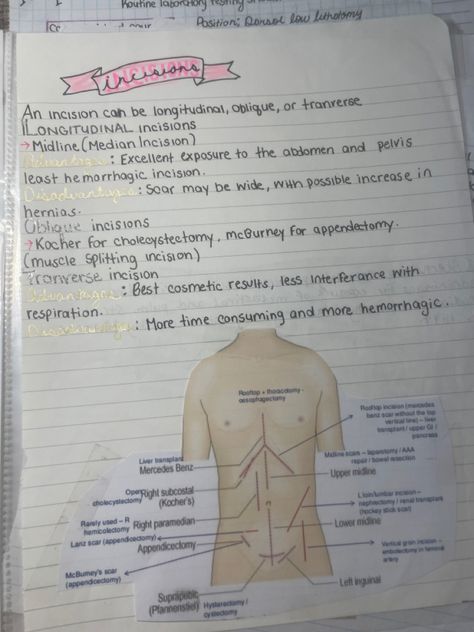 Routine laboratory testing
Position: Dorsal low lithotomy
incisions
An incision can be longitudinal, oblique, or tranverse
LONGITUDINAL incisions
→ Midline (Median Incision)
Advantages: Excellent exposure to the abdomen and pelvis
least hemorrhagic incision.
Disadvantages: Scar may be wide, with possible increase in
hernias.
Oblique incisions
→ Kocher for cholecystectomy, mcBurney for appendectomy.
(muscle splitting incision)
Tranverse incision
Advantages: Best cosmetic results, less interferance with
respiration.
Disadvantages: More time consuming and more hemorrhagic.
Rooftop + thoracotomy -
oesophagectomy
Rooftop incision (mercedes
benz scar without the top
vertical line) – liver
transplant / upper GI /
pancreas
Liver transplant
Mercedes Benz
Midline scars – laparotomy / AAA
repair / bowel resection
Upper midline
Open
cholecystectomy
Right subcostal
(Kocher's)
L loin/lumbar incision –
nephrectomy / renal transplant
(hockey stick scar)
Rarely used – R
hemicolectomy
Right paramedian
Lower midline
Lanz scar (appendicectomy)
Appendicectomy
Vertical groin incision –
embolectomy in femoral
artery
McBurney's scar
(appendicectomy)
Left inguinal
Suprapubic
(Pfannenstiel)
Hysterectomy /
cystectomy